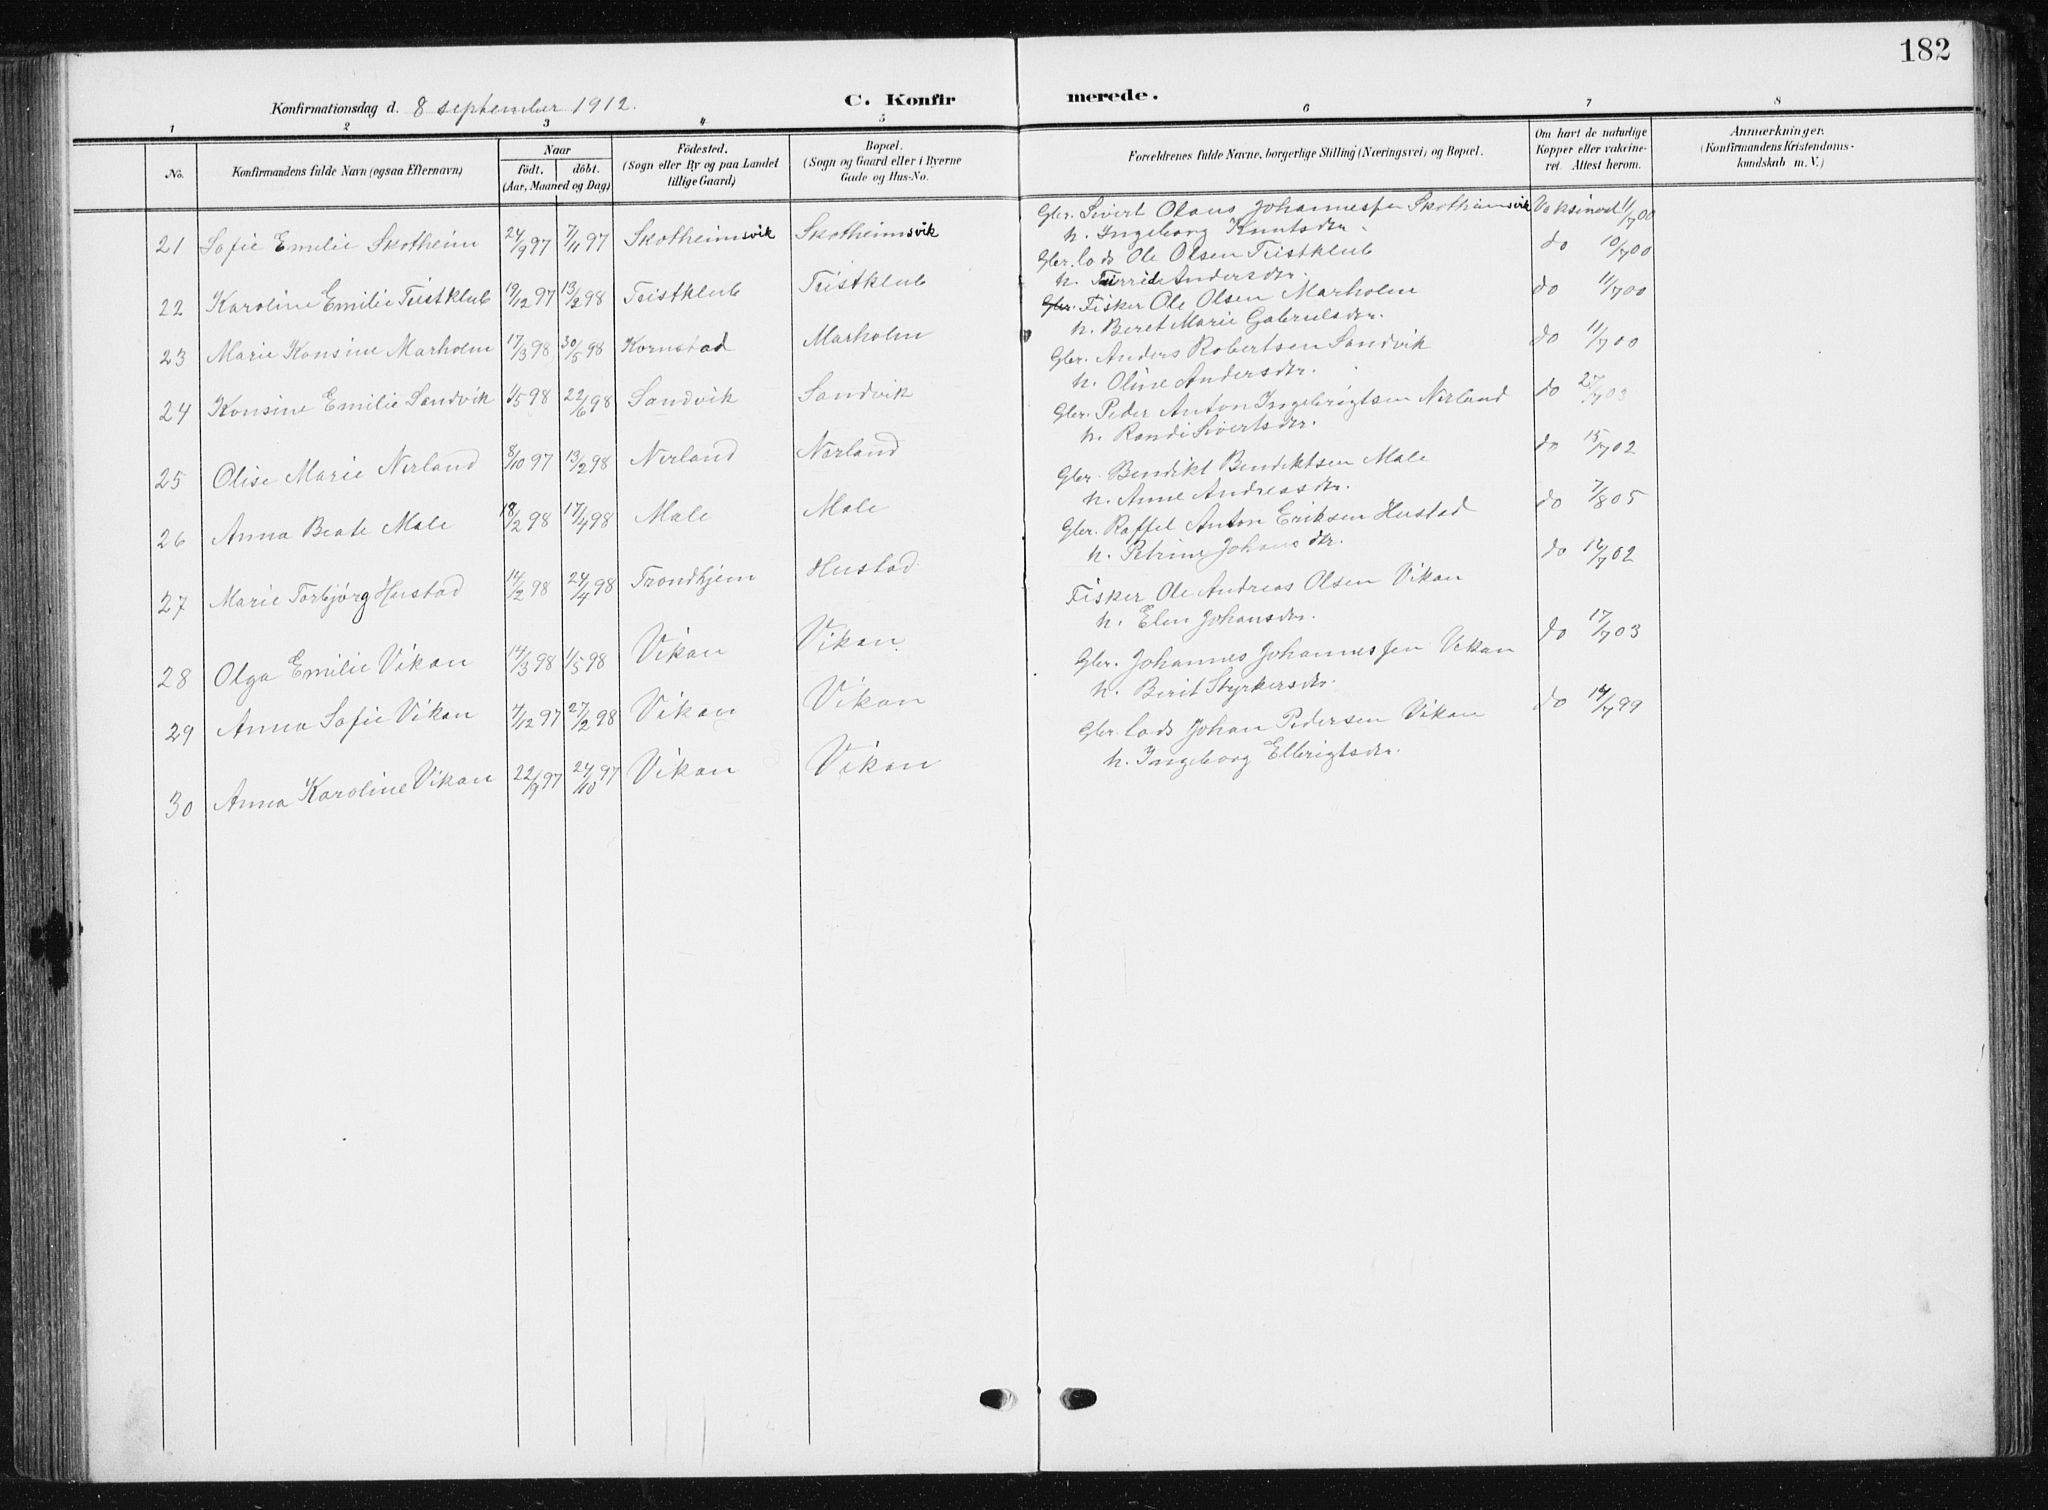 182
Konfirmationsdag d. 8 september 1912.
C. Konfir merede.
1 2 3 4 5 6 7 8
No.
Konfirmandens fulde Navn (ogsaa Efternavn)
Naar
født. døbt.
(Aar, Maaned og Dag)
Fødested.
(Sogn eller By og paa Landet
tillige Gaard)
Bopæl.
(Sogn og Gaard eller i Byerne
Gade og Hus-No.
Forældrenes fulde Navne, borgerlige Stilling (Næringsvei) og Bopæl.
Om havt de naturlige
Kopper eller vakcine-
ret. Attest herom.
Anmærkninger.
(Konfirmandens Kristendoms-
kundskab m. V.)
21 Sofie Emilie Skotheim 24/9 97 7/11 97 Skotheimsvik Skotheimsvik Gbr. Sivert Olaus Johannessen Skotheimsvik Vaksinert 11/7 00
h. Ingeborg Knutsdtr.
22 Karoline Emilie Teistklub 19/12 97 13/2 98 Teistklub Teistklub Gbr. lods Ole Olsen Teistklub do 10/7 00
h. Andersdtr.
23 Marie Konsine Marholm 17/3 98 30/5 98 Kornstad Marholm Gbr. Fisker Ole Olsen Marholm do 11/7 00
h. Beret Marie Gabrielsdtr.
24 Konsine Emilie Sandvik 1/5 98 22/6 98 Sandvik Sandvik Gbr. Anders Robertsen Sandvik do 11/7 00
h. Oline Andersdtr.
25 Olise Marie Nerland 8/10 97 13/2 98 Nerland Nerland Gbr. Peder Anton Ingebrigtsen Nerland do 27/7 03
h. Randi Sivertsdtr.
26 Anna Beate Male 18/2 98 17/4 98 Male Male Gbr. Bendikt Bendiktsen Male do 15/7 02
h. Anne Andreasdtr.
27 Marie Torbjørg Hustad 14/2 98 24/4 98 Trondhjem Hustad Gbr. Raffel Anton Eriksen Hustad do 7/8 05
h. Petrine Johansdtr.
28 Olga Emilie Vikan 14/3 98 1/5 98 Vikan Vikan. Fisker Ole Andreas Olsen Vikan do 16/7 02
h. Elen Johansdtr.
29 Anna Sofie Vikan 7/12 97 27/2 98 Vikan Vikan Gbr. Johannes Johannessen Vikan do 17/7 03
h. Berit Styrkersdtr.
30 Anna Karoline Vikan 22/9 97 24/10 97 Vikan Vikan Gbr. lods Johan Pedersen Vikan do 14/7 99
h. Ingeborg Ellerigtsdtr.